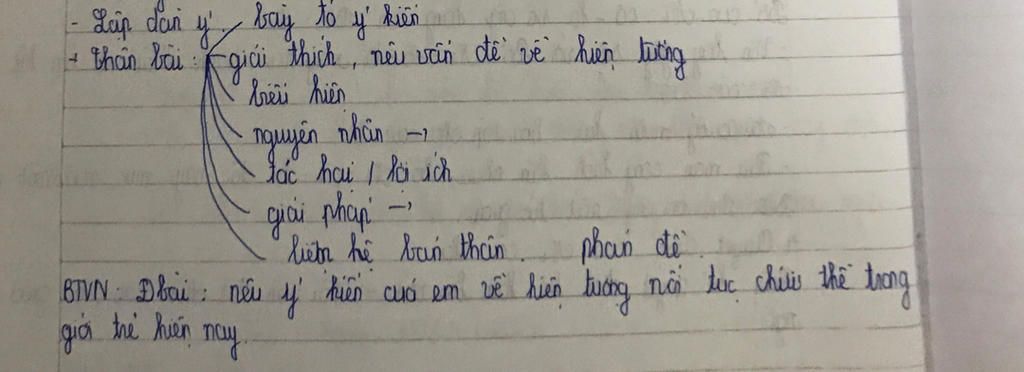 - Lập dàn ý. bày tỏ ý kiến
+ thân bài: giải thích, nêu vấn đề về hiện tượng
biểu hiện
nguyên nhân →
tác hại / lợi ích
giải pháp →
liên hệ bản thân. phản đề.
BTVN: Đbài: nêu ý kiến của em về hiện tượng nói tục chửi thề trong
giới trẻ hiện nay.